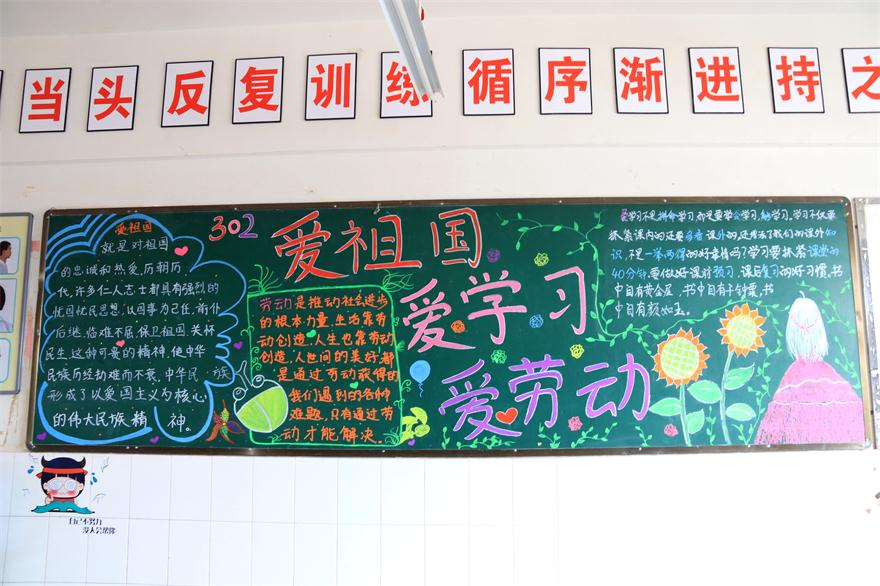 当头 反复训练 循序渐进 持之
爱祖国
就是对祖国
的忠诚和热爱,历朝历
代,许多仁人志士都具有强烈的
忧国忧民思想,以国事为己任,前仆
后继,临难不屈,保卫祖国,关怀
民生,这种可贵的精神,使中华
民族历经劫难而不衰,中华民族
形成了以爱国主义为核心
的伟大民族精神。
302
爱祖国
爱学习
爱劳动
劳动是推动社会进步
的根本力量,生活靠劳
动创造,人生也靠劳动
创造,人世间的美好,都
是通过劳动获得的
我们遇到的各种
难题,只有通过劳
动才能解决。
爱学习不是拼命学习,都是要学会学习,学习不仅要
抓紧课内的还要看课外的,还增添了我们的课外知
识,不是一举两得的好事情吗?学习要抓紧课堂的
40分钟,要做好课前预习,课后复习的好习惯,书
中自有黄金屋,书中自有千钟粟,书
中自有颜如玉。
自己不努力
没人会帮你